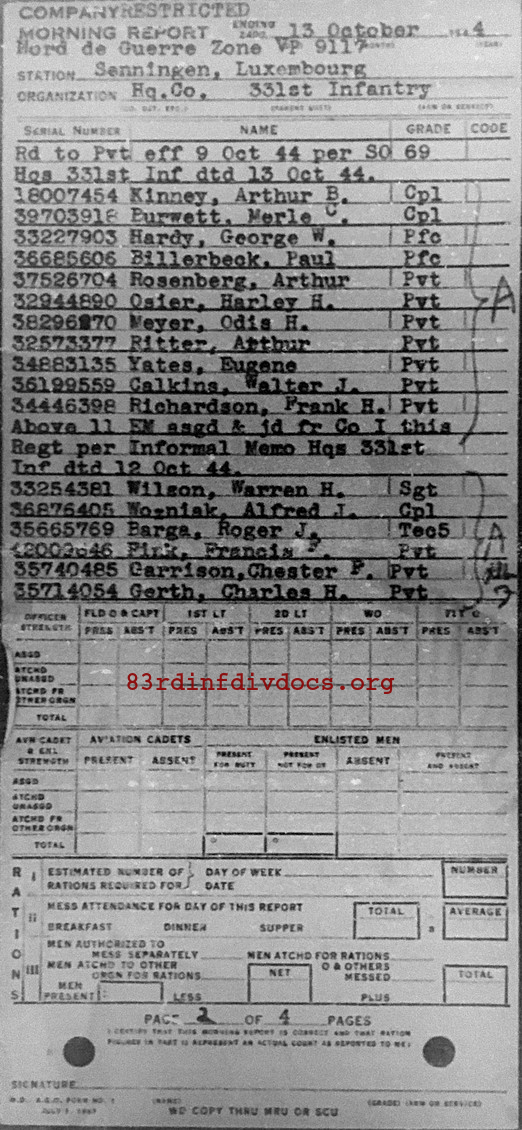 COMPANY RESTRICTED
MORNING REPORT ENDING 2400 13 October 1944
Nord de Guerre Zone VP 9117
STATION Senningen, Luxembourg
ORGANIZATION Hq.Co. 331st Infantry
SERIAL NUMBER NAME GRADE CODE
Rd to Pvt eff 9 Oct 44 per SO 69
Hqs 331st Inf dtd 13 Oct 44.
18007454 Kinney, Arthur B. Cpl
39703918 Burwett, Merle C. Cpl
33227903 Hardy, George W. Pfc
36685606 Billerbeck, Paul Pfc
37526704 Rosenberg, Arthur Pvt
32944890 Osier, Harley H. Pvt A
38296870 Meyer, Odis H. Pvt
32573377 Ritter, Arthur Pvt
34883135 Yates, Eugene Pvt
36199559 Calkins, Walter J. Pvt
34446398 Richardson, Frank H. Pvt
Above 11 EM asgd & jd fr Co I this
Regt per Informal Memo Hqs 331st
Inf dtd 12 Oct 44.
33254381 Wilson, Warren H. Sgt
36876405 Wozniak, Alfred J. Cpl
35665769 Barga, Roger J. Tec5
42009646 Fink, Francis F. Pvt A
35740485 Garrison, Chester F. Pvt
35714054 Gerth, Charles H. Pvt
OFFICER STRENGTH FLD O & CAPT 1ST LT 2D LT WO FLT O
PRES ABS'T PRES ABS'T PRES ABS'T PRES ABS'T PRES ABS'T
ASGD
ATCHD UNASGD
ATCHD FR OTHER ORGN
TOTAL
83rdinfdivdocs.org
AVN CADET & ENL STRENGTH AVIATION CADETS ENLISTED MEN
PRESENT ABSENT PRESENT FOR DUTY PRESENT NOT FOR DY ABSENT PRESENT AND ABSENT
ASGD
ATCHD UNASGD
ATCHD FR OTHER ORGN
TOTAL
RATIONS
I ESTIMATED NUMBER OF RATIONS REQUIRED FOR DAY OF WEEK DATE NUMBER
II MESS ATTENDANCE FOR DAY OF THIS REPORT TOTAL AVERAGE
BREAKFAST DINNER SUPPER
III MEN AUTHORIZED TO MESS SEPARATELY MEN ATCHD FOR RATIONS
MEN ATCHD TO OTHER ORGN FOR RATIONS NET O & OTHERS MESSED TOTAL
MEN PRESENT LESS PLUS
PAGE 2 OF 4 PAGES
I CERTIFY THAT THIS MORNING REPORT IS CORRECT AND THAT RATION
FIGURES IN PART III REPRESENT AN ACTUAL COUNT AS REPORTED TO ME
SIGNATURE
W.D. A.G.O. FORM NO. 1 (NAME) (GRADE) (ARM OR SERVICE)
JULY 1, 1943 WD COPY THRU MRU OR SCU